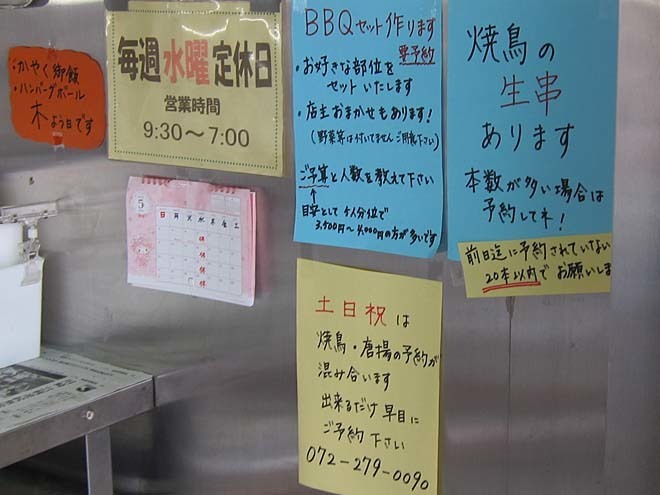 ・かやく御飯
・ハンバーグボール
木よう日です
毎週水曜定休日
営業時間
9:30～7:00
5
日月火水木金土
休
休
休
休
休
BBQセット作ります
要予約
・お好きな部位を
セットいたします
・店主おまかせもあります!
(野菜等は付いてません ご用意下さい)
ご予算と人数を教えて下さい
↑
目安として 5人分位で
3,500円～4,000円の方が多いです
焼鳥の
生串
あります
本数が多い場合は
予約してネ!
前日迄に予約されていない
20本以内でお願いしま
土日祝は
焼鳥・唐揚の予約が
混み合います
出来るだけ早目に
ご予約下さい
072-279-0090